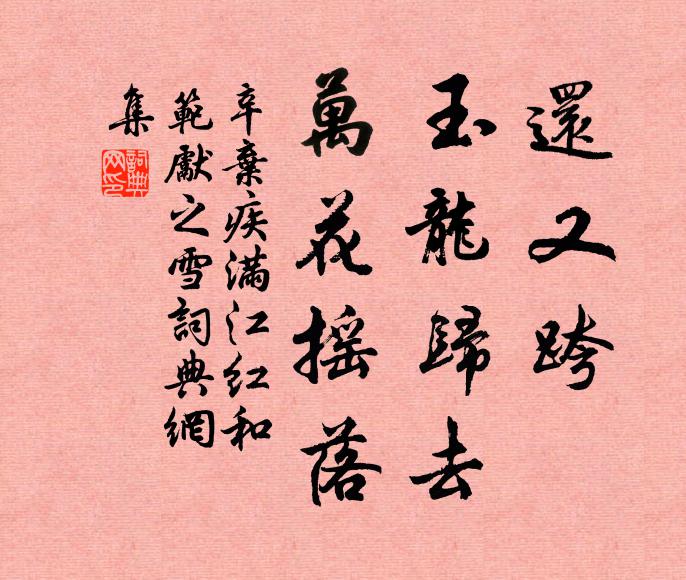 還又跨
玉龍歸去
萬花摇落
辛棄疾满江红和
範獻之雪詞典網
集
詞典
网印